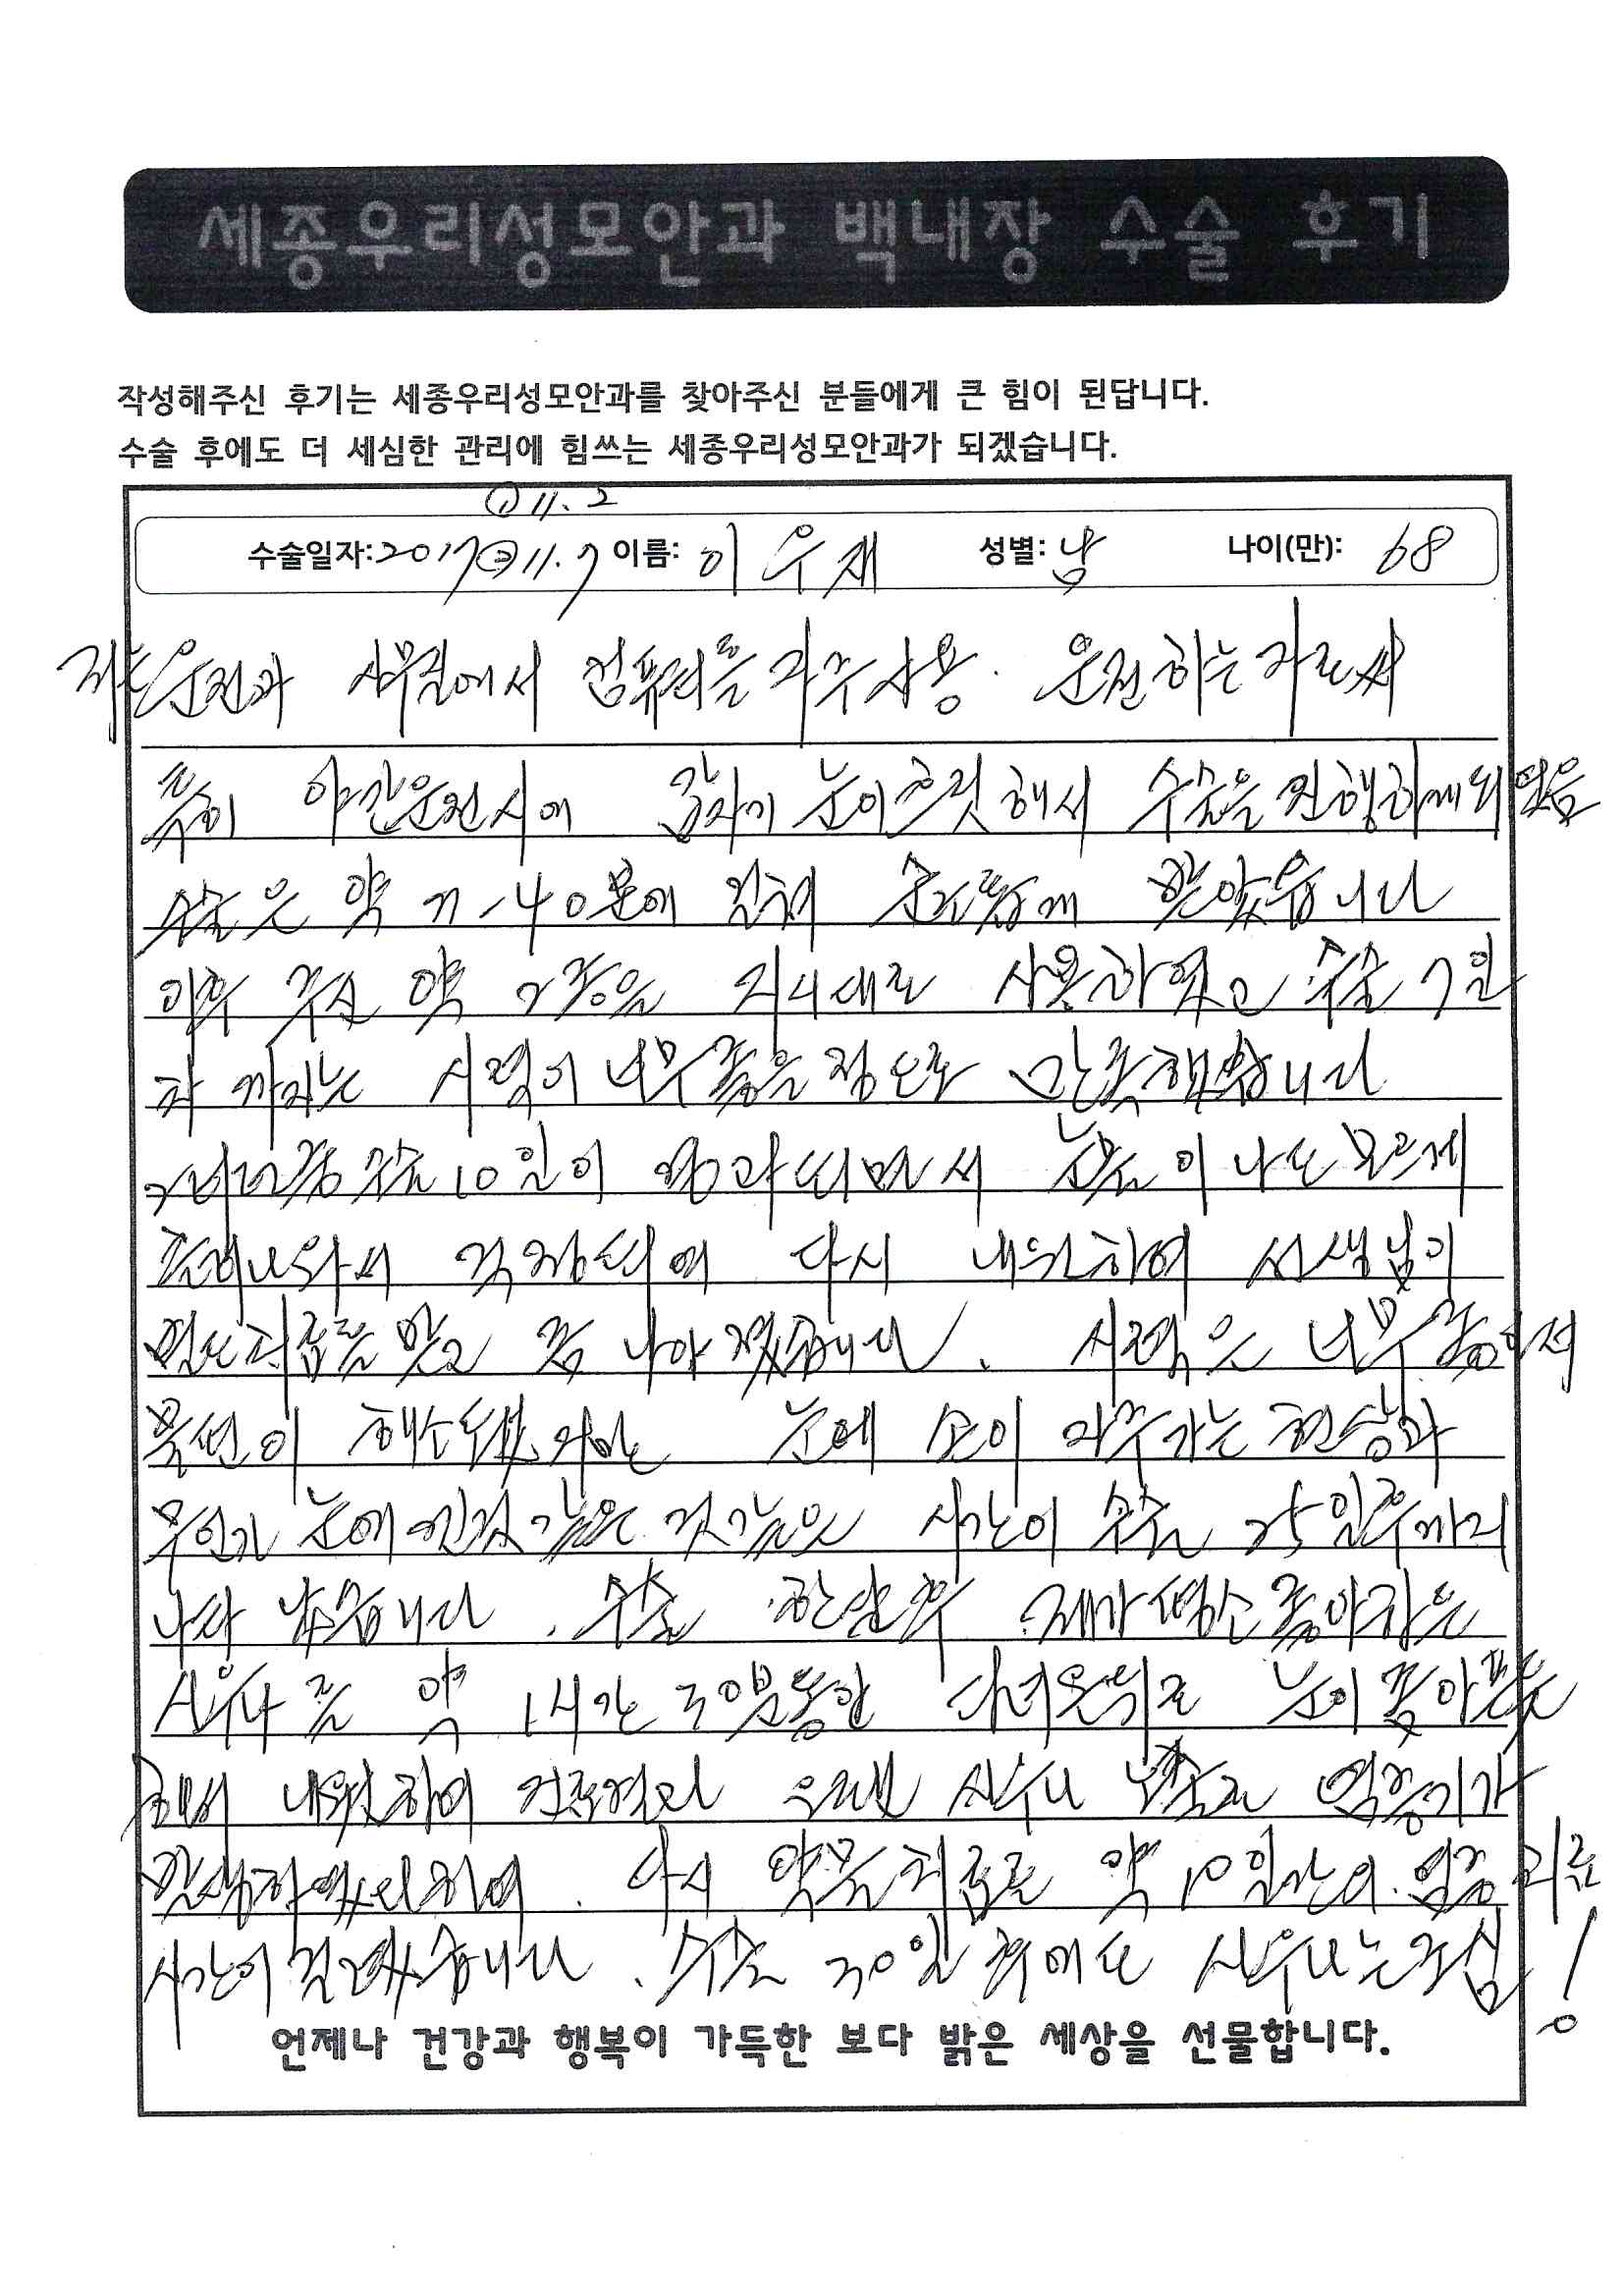 세종우리성모안과 백내장 수술 후기
작성해주신 후기는 세종우리성모안과를 찾아주신 분들에게 큰 힘이 된답니다.
수술 후에도 더 세심한 관리에 힘쓰는 세종우리성모안과가 되겠습니다.
① 11. 2
수술일자: 2017 ② 11. 7 이름: 이우재 성별: 남 나이(만): 68
저는 운전과 사무실에서 컴퓨터를 자주 사용. 운전하는 자로써
특히 야간운전시에 갑자기 눈이 흐릿해서 수술을 진행하게 되었음
수술은 약 40분에 걸쳐 순조롭게 받았습니다
이후 약 2종을 지시대로 사용하였고 수술 7일
차 까지는 시력이 너무 좋을 정도로 만족했습니다
그러던중 수술 10일이 경과되면서 눈물이 나도 모르게
흘러나와서 걱정되어 다시 내원하여 선생님이
치료를 받고 좀 나아졌습니다. 시력은 너무 좋아져
불편이 해소되었지만 눈에 손이 자주가는 현상과
무언가 눈에 낀것 같은 것같은 시간이 수술 25일후까지
나타났습니다. 수술 한달후 제가 평소 좋아하는
사우나를 약 1시간 30분동안 다녀온뒤로 눈이 좀 아픈듯
하여 내원하여 검진결과 오랜 사우나 노출로 염증기가
발생하였다하여. 다시 약물치료로 약 10일간의 염증치료
시간이 걸렸습니다. 수술 30일 후에도 사우나는 조심!
언제나 건강과 행복이 가득한 보다 밝은 세상을 선물합니다.